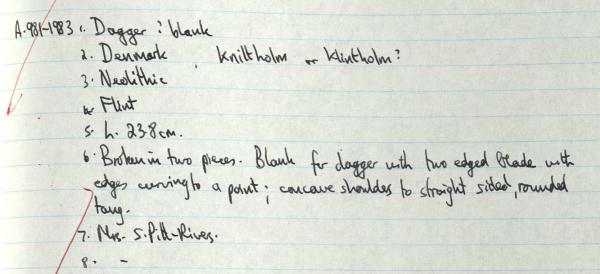 A.981-1983 1. Dagger : blank
2. Denmark, Kniltholm or Klintholm?
3. Neolithic
4. Flint
5. L. 23.8 cm.
6. Broken in two pieces. Blank for dagger with two edged blade with
edges curving to a point; concave shoulders to straight sided, rounded
tang.
7. Mrs. S. Pitt-Rivers.
8. -